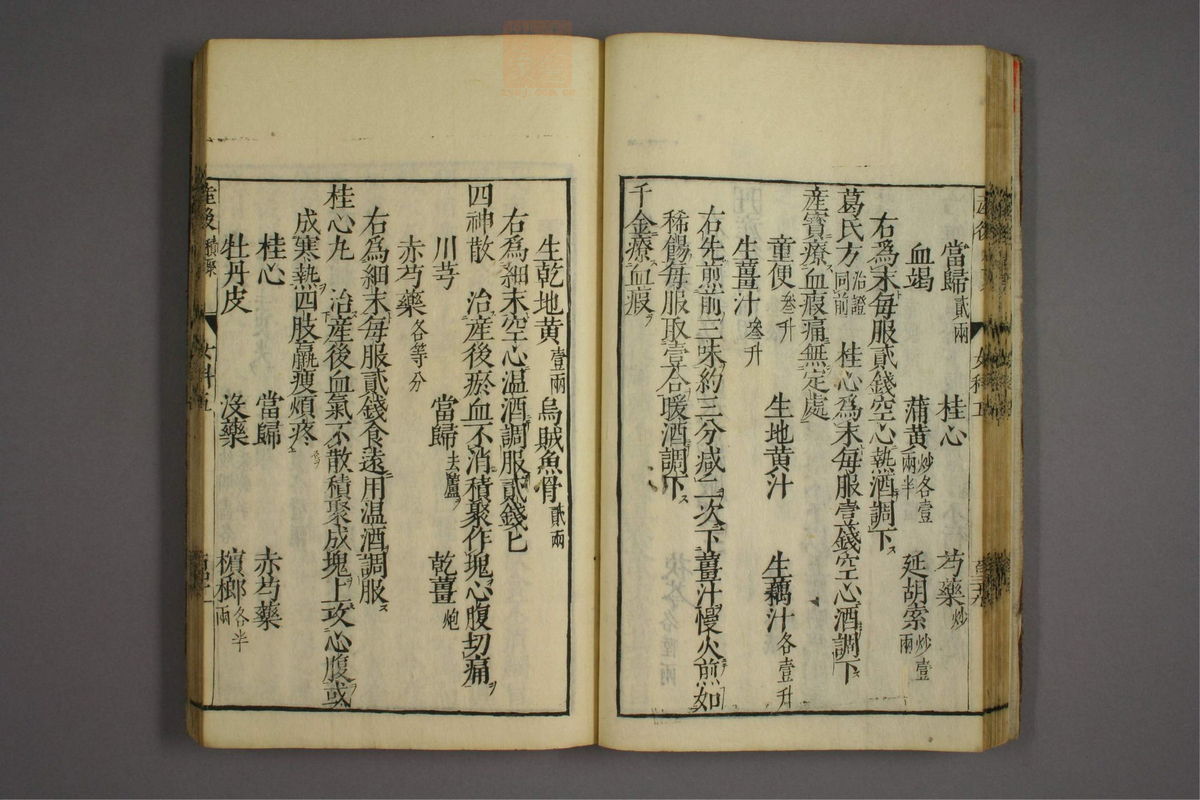 當歸貳兩 桂心 芍藥炒
血竭 蒲黃炒各壹兩半 延胡索炒壹兩
右爲末每服貳錢空心熱酒調下ス
葛氏方治證同前 桂心爲末每服壹錢空心酒調下ス
産寶療血瘕痛無定處
童便叄升 生地黄汁 生藕汁各壹升
生薑汁叄升
右先煎前三味約三分减二次下薑汁慢火煎如
稀餳每服取壹合暖酒調下ス
千金療血瘕ヲ
生乾地黄壹兩 烏賊魚骨貳兩
右爲細末空心温酒調服貳錢匕
四神散 治産後瘀血不消積聚作塊心腹切痛ヲ
川芎 當歸去蘆ヲ 乾薑炮
赤芍藥各等分
右爲細末每服貳錢食遠用温酒調服ス
桂心丸 治産後血氣不散積聚成塊上攻心腹或
成寒熱四肢羸瘦煩疼
桂心 當歸 赤芍藥
牡丹皮 沒藥 檳榔各半兩
産後積聚 女科五